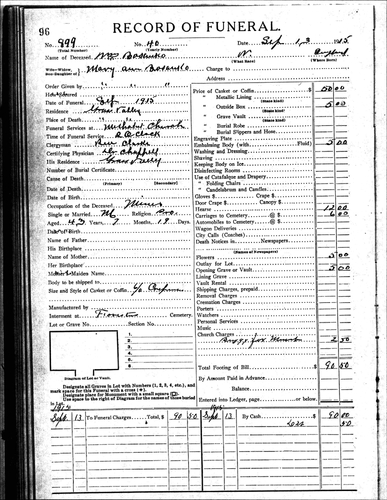 96
RECORD OF FUNERAL.
No. 999 (Total Number) No. 40 (Yearly Number) Date, Sep 1915
Name of Deceased, Wm W. (What Race) England (Where Born)
Wife—Widow, Son-Daughter of Mary Ann Charge to
Address
Order Given by
Husband
Date of Funeral Sep 1915
Residence Grass Valley
Place of Death
Funeral Services at Methodist Church
Time of Service 2 O Clock
Clergyman Rev
Certifying Physician
His Residence Grass Valley
Number of Burial Certificate
Cause of Death
Date of Death (Primary) (Descendant)
Date of Birth
Occupation of the Deceased Miner
Single or Married M Religion Pro.
Aged 43 Years, 7 Months, 19 Days.
Date of Birth
Name of Father
His Birthplace
Name of Mother
Her Birthplace
Mother's Maiden Name
Body to be shipped to
Size and Style of Casket or Coffin
Manufactured by
Interment at Cemetery
Lot or Grave No. Section No.
1
2
3
4
5
6
Diagram of Lot or Vault.
Designate all Graves in Lot with Numbers (1, 2, 3, 4, etc.), and
mark space for this Funeral with a cross (+).
Designate place for Monument with a small square (□).
Use space to right of Diagram for the names of those buried
in Lot.
Price of Casket or Coffin $ 50 00
" Metallic Lining (State kind)
" Outside Box 5 00
" Grave Vault (State kind)
" Burial Robe (State kind)
" Burial Slippers and Hose
Engraving Plate
Embalming Body (with Fluid) 5 00
Washing and Dressing
Shaving
Keeping Body on Ice
Disinfecting Rooms
Use of Catafalque and Drapery
" Folding Chairs
" Candelabrum and Candles
Gloves $ Crape $
Door Crape $ Canopy $
Hearse 12 00
Carriages to Cemetery @ $ 6 00
Automobiles to Cemetery @ $
Wagon Deliveries
City Calls (Coaches)
Death Notices in Newspapers
(Name them)
Flowers 5 00
Outlay for Lot
Opening Grave or Vault 5 00
Lining Grave
Vault Rental
Shipping Charges, prepaid
Removal Charges
Cremation Charges
Porters
Watchers
Personal Services
Music
Church Charges
Buggy for Minister 2 50
Total Footing of Bill $ 90 50
By Amount Paid in Advance
Balance
Entered into Ledger, page or below.
Sept 13 To Funeral Charges Total, $ 90 50 Sept 13 By Cash $ 90 00
50